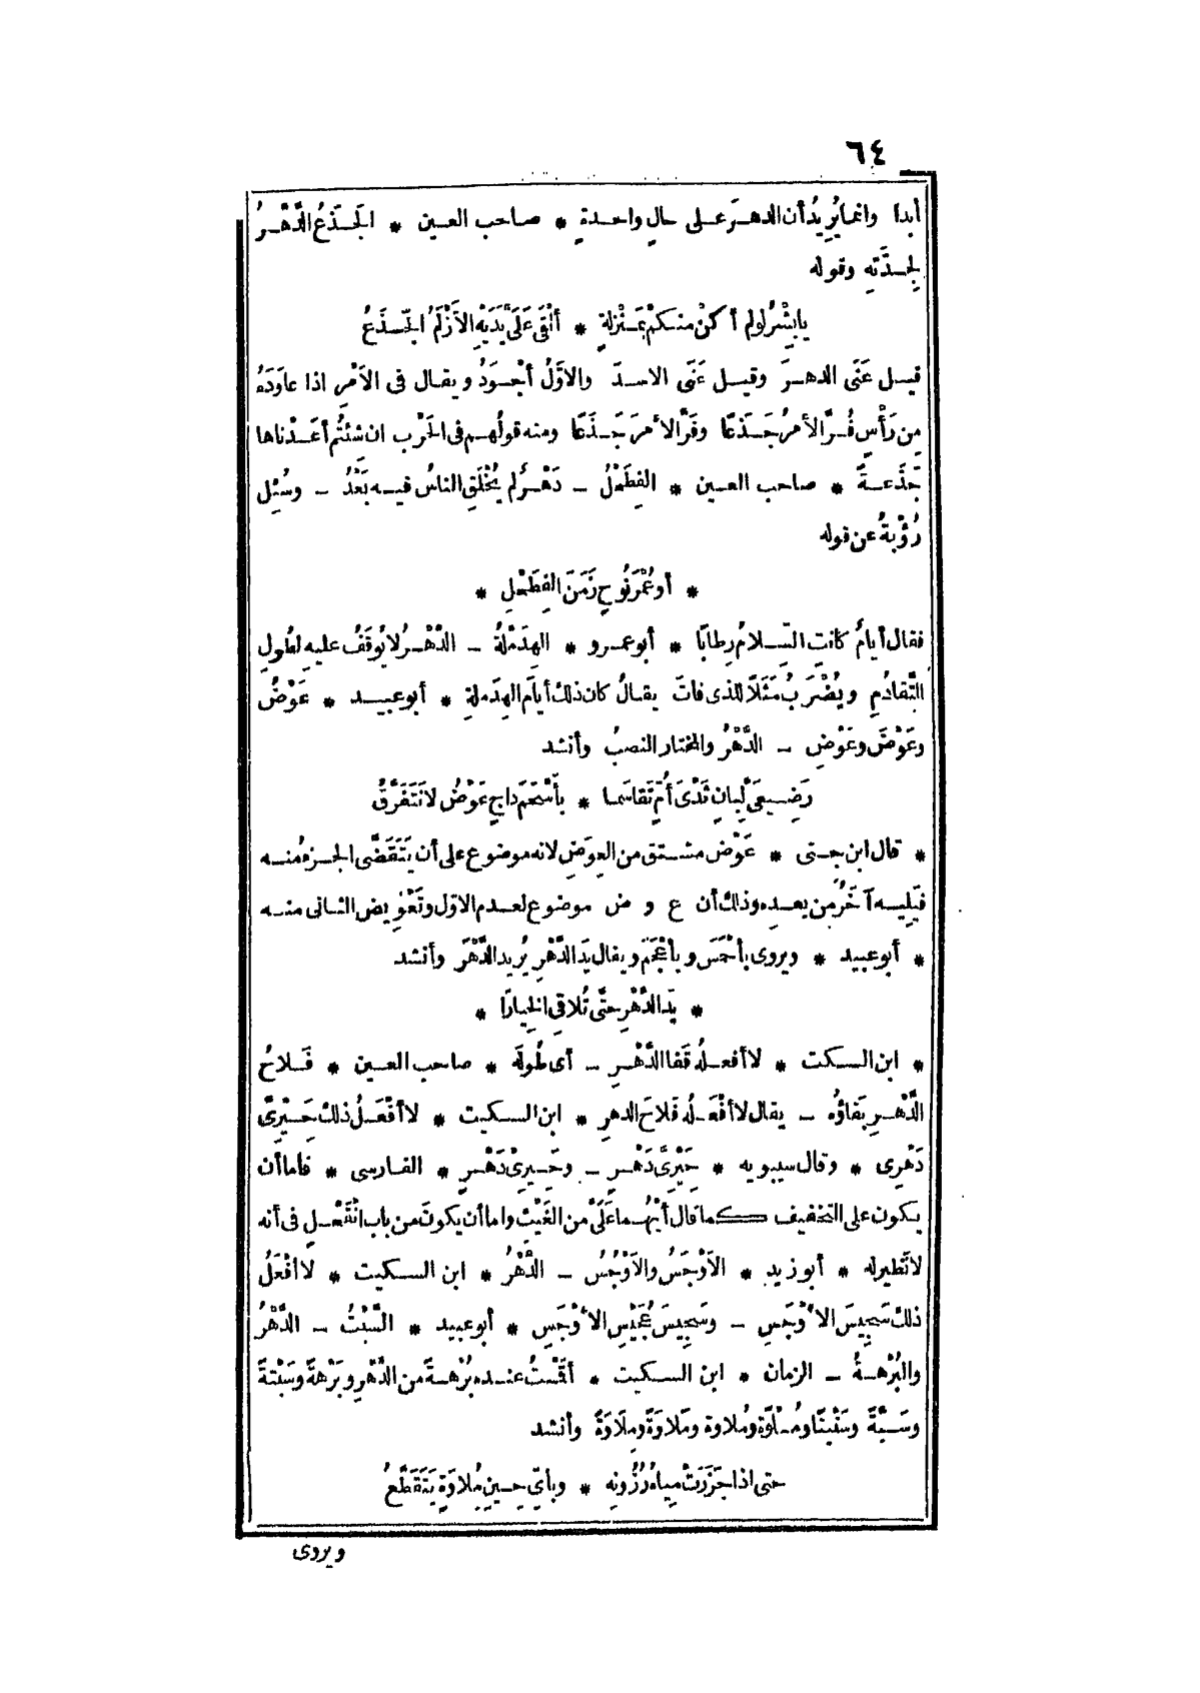 ٦٤
أبدا وانما يُرِيدُ أن الدهرَ على حالٍ واحدةٍ * صاحب العين * الجَذَعُ الدَّهْرُ
لِجدَّتِهِ وقوله
يابِشْرُ لولم أكنْ منكمْ بمَنْزِلةٍ * ألْقَى عَلَىَّ يَدَيْهِ الأزْلَمُ الجَذَعُ
قيل عَنَى الدهرَ وقيل عَنَى الاسدَ والاوَّلُ أجْوَدُ ويقال فى الأمْرِ اذا عاوَدَهُ
مِن رَأْسٍ فُرَّ الأمرُ جَذَعًا وفَرَّ الأمرَ جَذَعًا ومنه قولُهم فى الحَرْب ان شئتُم أعَدْناها
جَذَعةً * صاحب العين * الفِطَحْلُ - دَهْرٌ لم يُخْلَقِ الناسُ فيه بَعْدُ - وسُئِل
رُؤْبةُ عن قوله
* أو عُمْرَ نُوحٍ زَمَنَ الفِطَحْلِ *
فقال أيامُ كانتِ السِّلامُ رِطابًا * أبو عمرو * الهِدَمْلةُ - الدَّهْرُ لا يُوقَفُ عليهِ لطُولِ
التَّقادُمِ ويُضْرَبُ مَثَلًا للذى فاتَ يقالُ كان ذلك أيامَ الهِدَملةِ * أبو عبيد * عَوْضُ
وعَوْضَ وعَوْضِ - الدَّهْرُ والمختار النصبُ وأنشد
رَضِيعَىْ لِبانٍ ثَدْىَ أُمٍّ تَقاسَما * بأسْحَمَ داجٍ عَوْضُ لا نَتَفَرَّقُ
* قال ابن جنى * عَوْض مشتق من العِوَضِ لانه موضوع على أن يَتَقَضَّى الجزءُ منه
فيَلِيه آخَرُ من بعدِه وذلك أن ع و ض موضوع لعدم الاوّل وتَعْوِيض الثانى منه
* أبو عبيد * ويروى بأحْمَسَ وبأعْجَمَ ويقال يَدَ الدَّهْرِ يُريد الدَّهْرَ وأنشد
* يَدَ الدَّهْرِ حتَّى تُلاقِى الخِيارَا *
* ابن السكت * لا أفعلُه قَفا الدَّهْرِ - أى طُولَه * صاحب العين * فَلاحُ
الدَّهْرِ بَقاؤُه - يقال لا أفْعَلُه فَلاحَ الدهرِ * ابن السكيت * لا أفْعَلُ ذلك حِيْرِىَّ
دَهْرِى * وقال سيبويه * حِيْرِىَّ دَهْرٍ - وحِيرِىْ دَهْرٍ * الفارسى * فاما أن
يكون على التخفيف كما قال أيْهُما عَلَىَّ من الغَيْثِ واما أن يكونَ من باب انْقَحْلٍ فى أنه
لا نَظيرله * أبو زيد * الأوْجَسُ والأوْجُسُ - الدَّهْرُ * ابن السكيت * لا أفْعَلُ
ذلك سَجِيسَ الأوْجَسِ - وسَجِيسَ عُجَيْسِ الأوْجَسِ * أبو عبيد * السَّبْتُ - الدَّهْرُ
والبُرْهةُ - الزمان * ابن السكيت * أقَمْتُ عنده بُرْهةً من الدَّهْرِ وبَرْهةً وسَبْتةً
وسَبَّةً وسَنْبتًا ومُلْوَةً ومُلاوة ومَلاوَةً ومِلَاوَةً وأنشد
حتى اذا جَزَرَتْ مِياهُ رُزُونِهِ * وبأىِّ حِينِ مُلاوَةٍ يَتَقَطَّعُ
ويروى